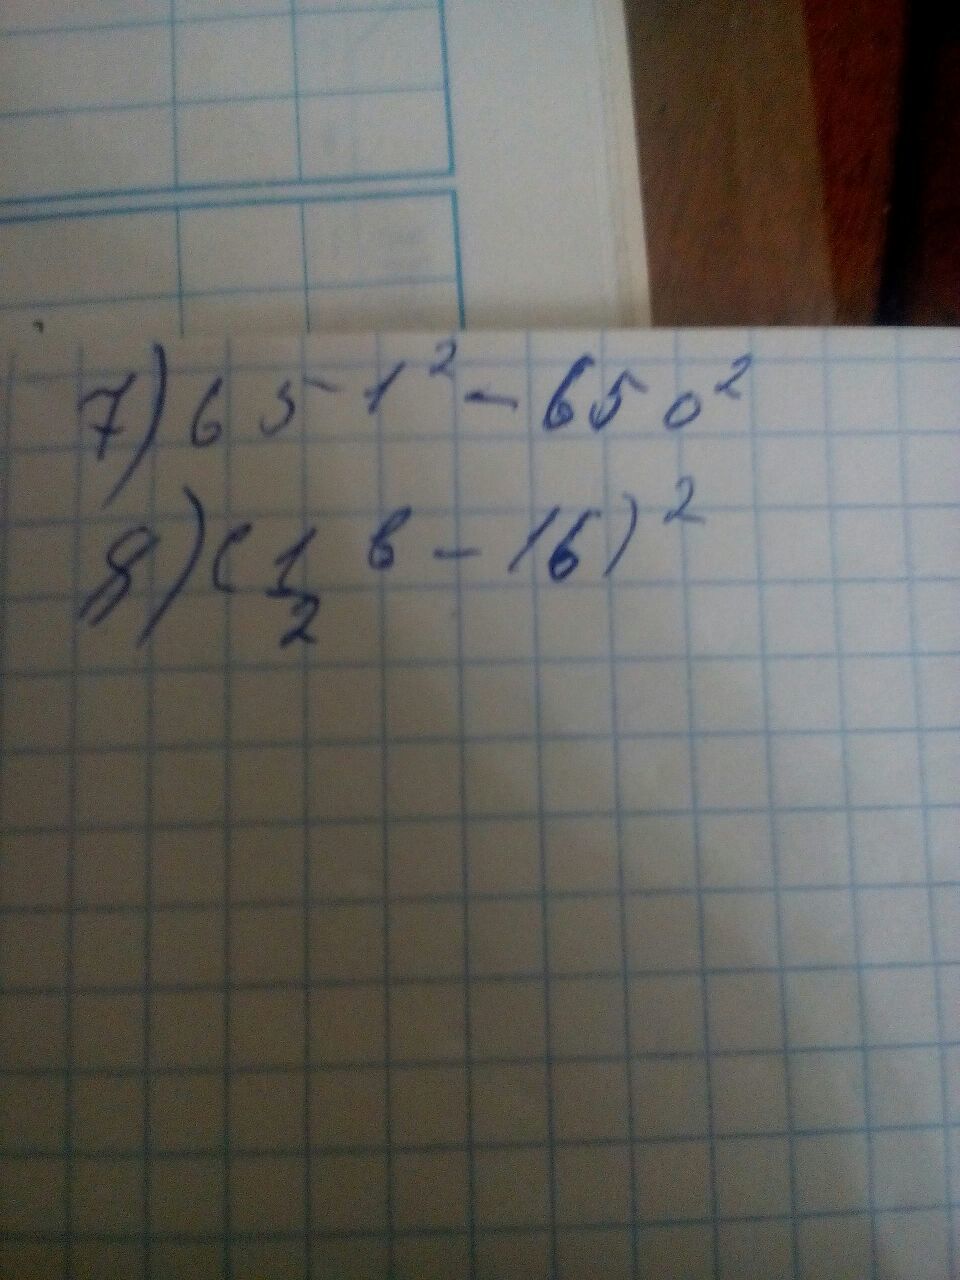 7) 651² - 650²
8) (½ в - 16)²